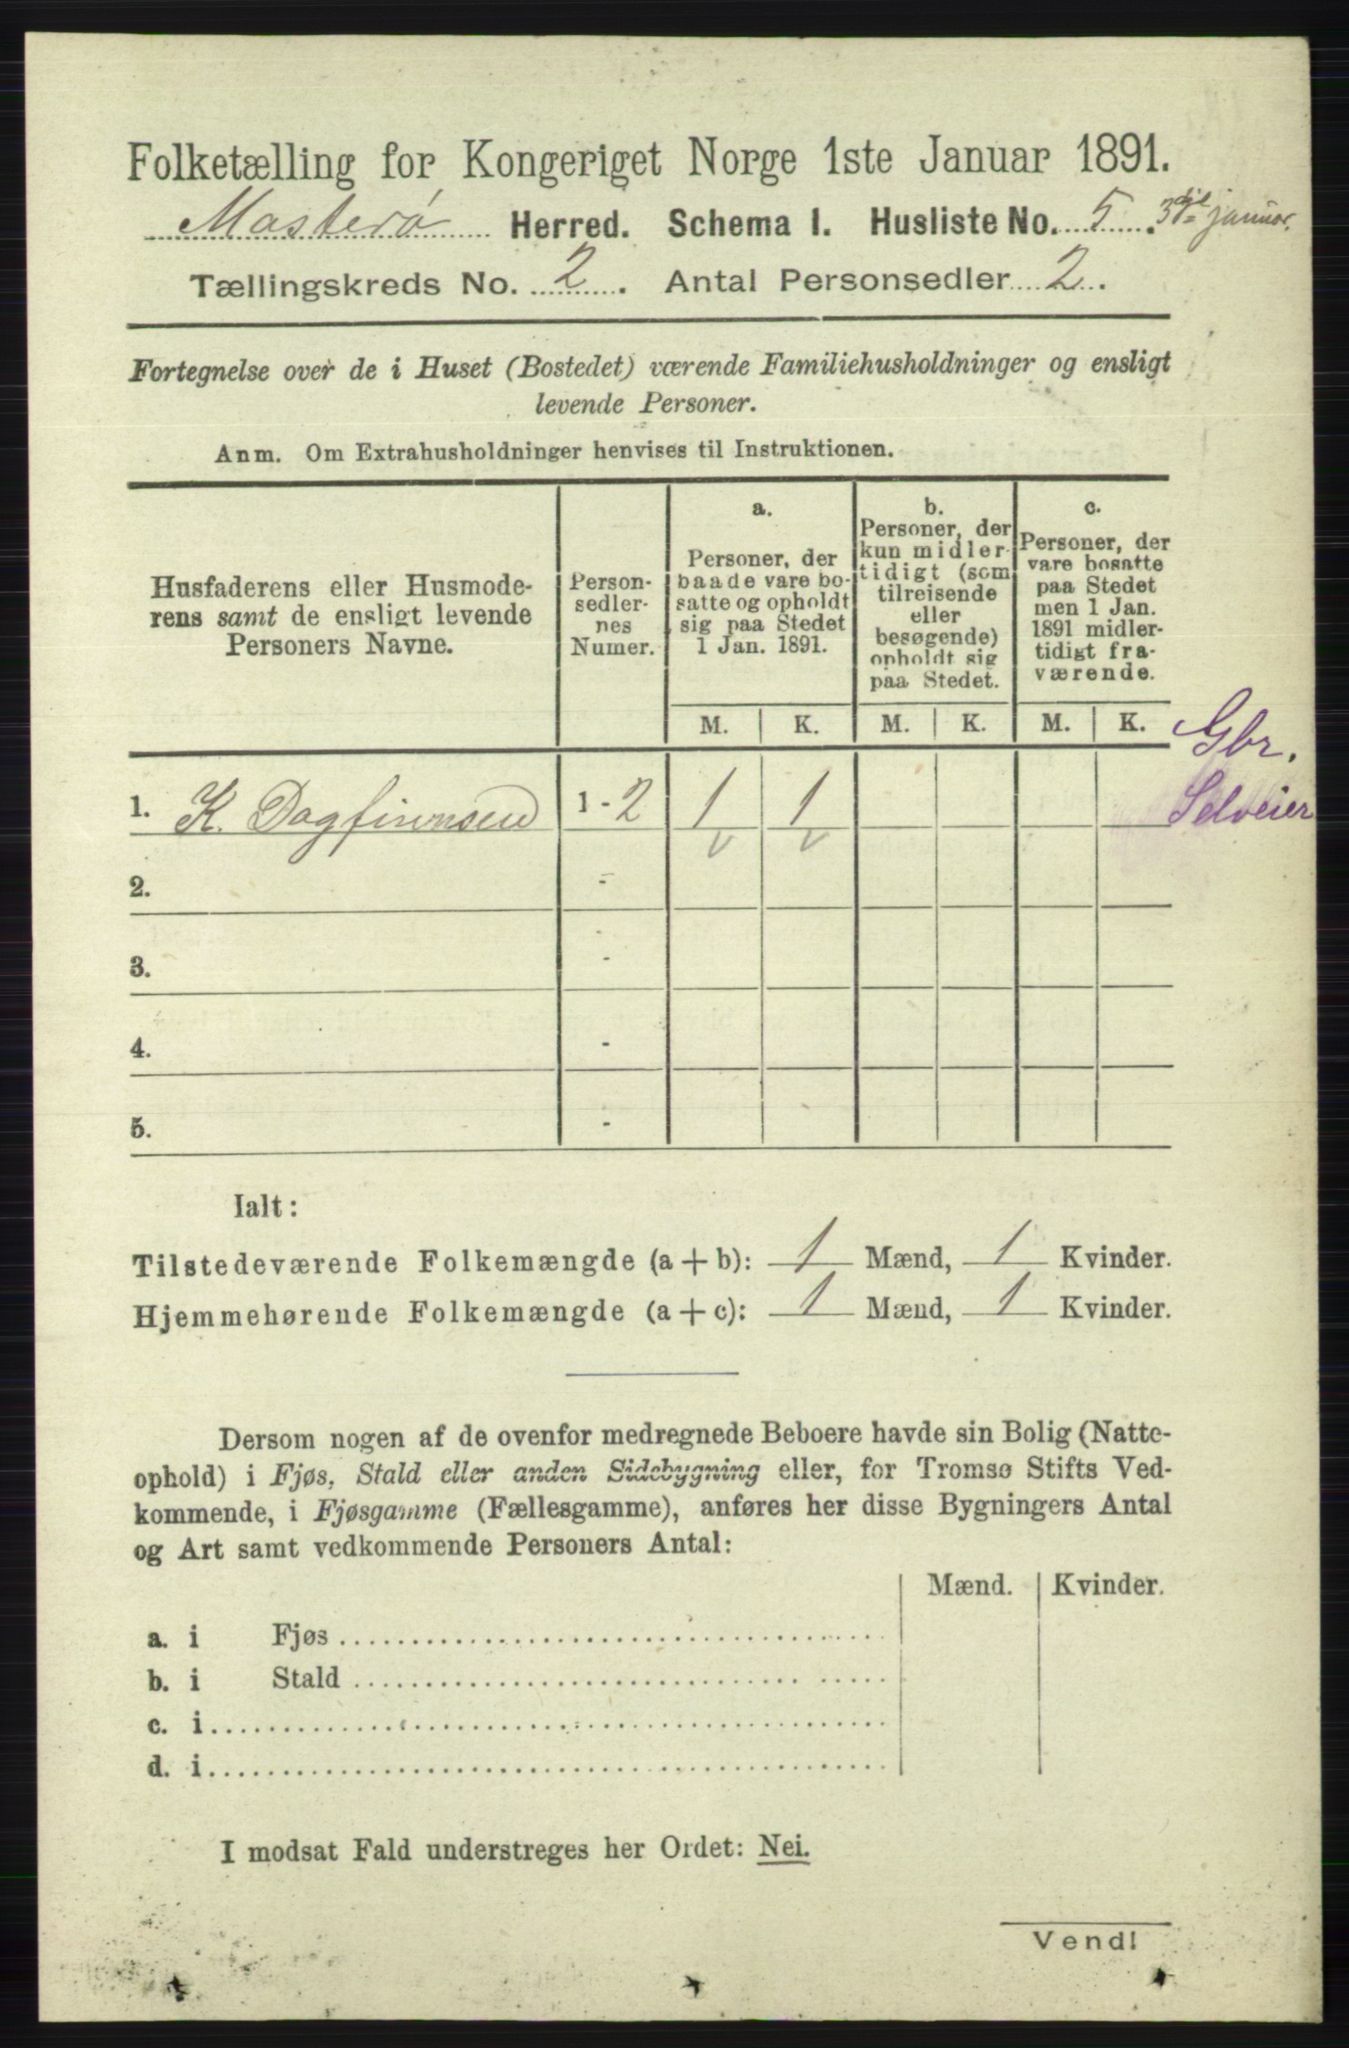 Folketælling for Kongeriget Norge 1ste Januar 1891.
Mosterø Herred. Schema I. Husliste No. 5. 3die januar.
Tællingskreds No. 2. Antal Personsedler 2.
Fortegnelse over de i Huset (Bostedet) værende Familiehusholdninger og ensligt
levende Personer.
Anm. Om Extrahusholdninger henvises til Instruktionen.
Husfaderens eller Husmode-
rens samt de ensligt levende
Personers Navne.
Person-
sedler-
nes
Numer.
a.
Personer, der
baade vare bo-
satte og opholdt
sig paa Stedet
1 Jan. 1891.
b.
Personer, der
kun midler-
tidigt (som
tilreisende
eller
besøgende)
opholdt sig
paa Stedet.
c.
Personer, der
vare bosatte
paa Stedet
men 1 Jan.
1891 midler-
tidigt fra-
værende.
M. K. M. K. M. K.
Gbr.
Selveier
1. K. Dagfinnsen 1 - 2 1 1
2. -
3. -
4. -
5. -
Ialt:
Tilstedeværende Folkemængde (a + b): 1 Mænd, 1 Kvinder.
Hjemmehørende Folkemængde (a + c): 1 Mænd, 1 Kvinder.
Dersom nogen af de ovenfor medregnede Beboere havde sin Bolig (Natte-
ophold) i Fjøs, Stald eller anden Sidebygning eller, for Tromsø Stifts Ved-
kommende, i Fjøsgamme (Fællesgamme), anføres her disse Bygningers Antal
og Art samt vedkommende Personers Antal:
Mænd. Kvinder.
a. i Fjøs
b. i Stald
c. i
d. i
I modsat Fald understreges her Ordet: Nei.
Vend!